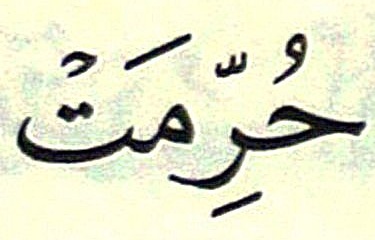 حُرِّمَتْ